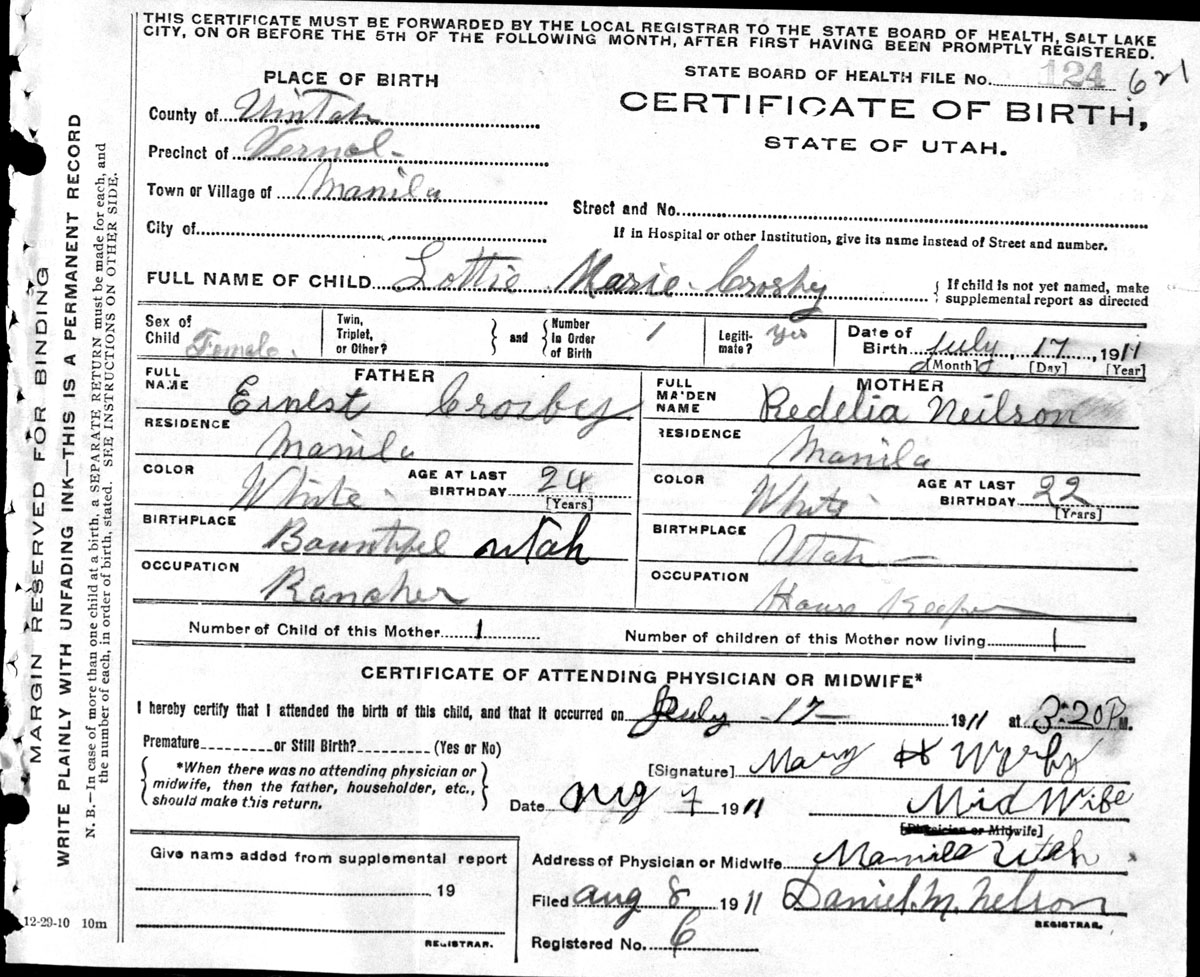 THIS CERTIFICATE MUST BE FORWARDED BY THE LOCAL REGISTRAR TO THE STATE BOARD OF HEALTH, SALT LAKE
CITY, ON OR BEFORE THE 5TH OF THE FOLLOWING MONTH, AFTER FIRST HAVING BEEN PROMPTLY REGISTERED.
PLACE OF BIRTH
STATE BOARD OF HEALTH FILE NO. 124 621
County of Uintah
CERTIFICATE OF BIRTH,
STATE OF UTAH.
Precinct of Vernal
Town or Village of Manila
Street and No.
City of
If in Hospital or other Institution, give its name instead of Street and number.
FULL NAME OF CHILD Lottie Marie Crosby
{ If child is not yet named, make
supplemental report as directed
Sex of
Child Female
Twin,
Triplet,
or Other?
} and {
Number
in Order
of Birth
1
Legiti-
mate? Yes
Date of
Birth July, 17, 1911
[Month] [Day] [Year]
FATHER
FULL
NAME Ernest Crosby
RESIDENCE Manila
COLOR White
AGE AT LAST
BIRTHDAY 24
[Years]
BIRTHPLACE Bountifel Utah
OCCUPATION Rancher
MOTHER
FULL
MAIDEN
NAME Redelia Neilson
RESIDENCE Manila
COLOR White
AGE AT LAST
BIRTHDAY 22
[Years]
BIRTHPLACE Utah
OCCUPATION House Keeper
Number of Child of this Mother 1
Number of children of this Mother now living 1
CERTIFICATE OF ATTENDING PHYSICIAN OR MIDWIFE*
I hereby certify that I attended the birth of this child, and that it occurred on July 17 1911 at 3:20 P M.
Premature or Still Birth? (Yes or No)
{ *When there was no attending physician or
midwife, then the father, householder, etc.,
should make this return. }
[Signature] Mary H
Date Aug 7 1911 Mid Wife
[Physician or Midwife]
Give name added from supplemental report
19
REGISTRAR.
Address of Physician or Midwife Manila Utah
Filed Aug 8 1911 Daniel. M. Nelson
REGISTRAR.
Registered No. 6
12-29-10 10m
MARGIN RESERVED FOR BINDING
WRITE PLAINLY WITH UNFADING INK—THIS IS A PERMANENT RECORD
N. B.—In case of more than one child at a birth, a SEPARATE RETURN must be made for each, and
the number of each, in order of birth, stated. SEE INSTRUCTIONS ON OTHER SIDE.